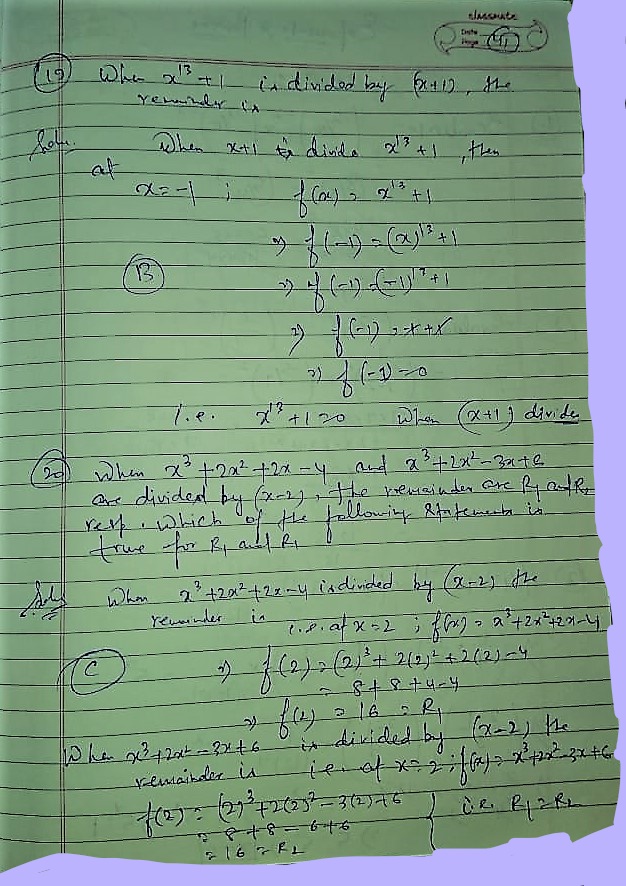 classmate
Date
Page 41
(19) When x¹³ + 1 is divided by (x+1), the
remainder is
Soln. When x+1 is divide x¹³ + 1, then
at
x = -1 ; f(x) = x¹³ + 1
⇒ f(-1) = (x)¹³ + 1
(B) ⇒ f(-1) = (-1)¹³ + 1
⇒ f(-1) = -1 + 1
⇒ f(-1) = 0
i.e. x¹³ + 1 = 0 When (x+1) divide
(20) When x³ + 2x² + 2x - 4 and x³ + 2x² - 3x + 6
are divided by (x-2), the remainder are R₁ and R₂
resp. Which of the following statements is
true for R₁ and R₁
Soln When x³ + 2x² + 2x - 4 is divided by (x-2) the
remainder is i.e. at x = 2 ; f(x) = x³ + 2x² + 2x - 4
(C) ⇒ f(2) = (2)³ + 2(2)² + 2(2) - 4
= 8 + 8 + 4 - 4
⇒ f(2) = 16 = R₁
When x³ + 2x² - 3x + 6 is divided by (x-2) the
remainder is i.e. at x = 2 ; f(x) = x³ + 2x² - 3x + 6
f(2) = (2)³ + 2(2)² - 3(2) + 6 i.e. R₁ = R₂
= 8 + 8 - 6 + 6
= 16 = R₂